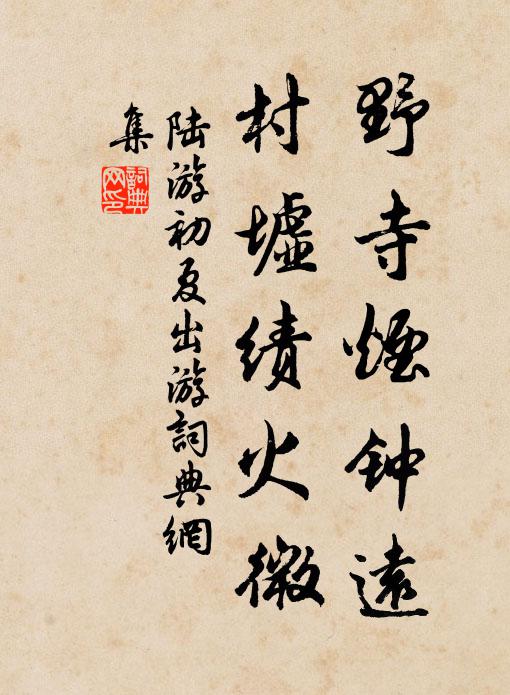 野寺煙钟遠
村墟績火微
陆游初夏出游詞典網
集
詞典
网印